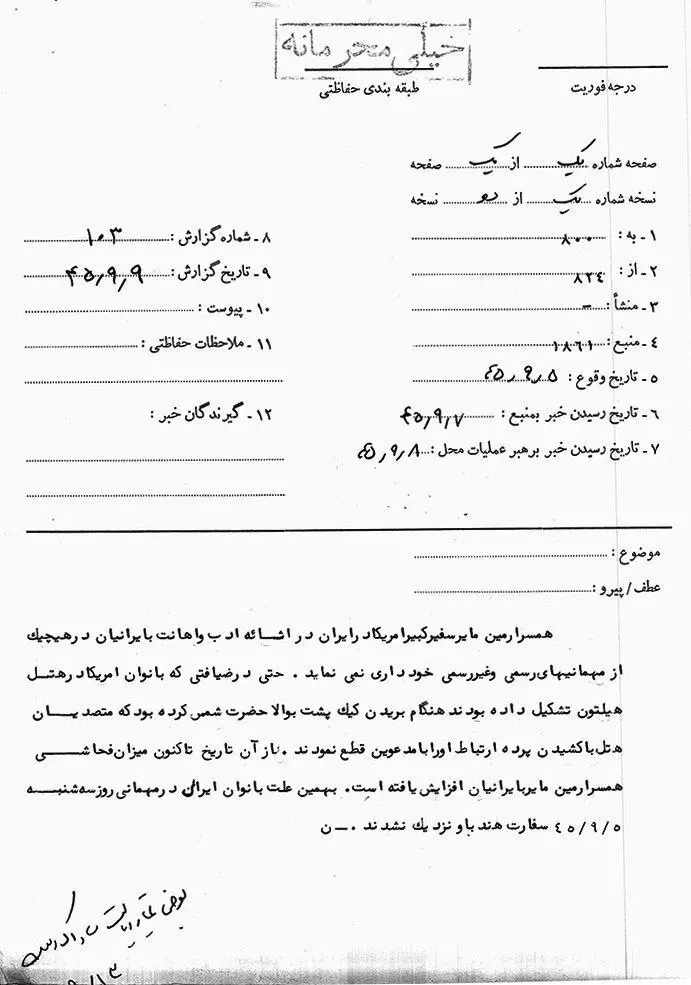 خیلی محرمانه
درجه فوریت
طبقه بندی حفاظتی
صفحه شماره یک از یک صفحه
نسخه شماره یک از دو نسخه
۱ ـ به : ۸۰۰
۲ ـ از : ۸۲۴
۳ ـ منشأ : –
۴ ـ منبع : ۱۸۶۱
۵ ـ تاریخ وقوع : ۴۵٫۹٫۵
۶ ـ تاریخ رسیدن خبر بمنبع : ۴۵٫۹٫۷
۷ ـ تاریخ رسیدن خبر برهبر عملیات محل : ۴۵٫۹٫۸
۸ ـ شماره گزارش : ۱۰۳
۹ ـ تاریخ گزارش : ۴۵٫۹٫۹
۱۰ ـ پیوست :
۱۱ ـ ملاحظات حفاظتی :
۱۲ ـ گیرندگان خبر :
موضوع :
عطف / پیرو :
همسر ارمین مایر سفیر کبیر امریکا در ایران در اشائه ادب و اهانت بایرانیان در هیچیک
از مهمانیهای رسمی و غیر رسمی خودداری نمی نماید . حتی در ضیافتی که بانوان امریکا در هتل
هیلتون تشکیل داده بودند هنگام بریدن کیک پشت بوالاحضرت شمس کرده بود که متصدیان
هتل با کشیدن پرده ارتباط او را با مدعوین قطع نمودند . از آن تاریخ تاکنون میزان فحاشی
همسر ارمین مایر بایرانیان افزایش یافته است. بهمین علت بانوان ایرانی در مهمانی روز سه شنبه
۴۵/۹/۵ سفارت هند باو نزدیک نشدند . ـ ن